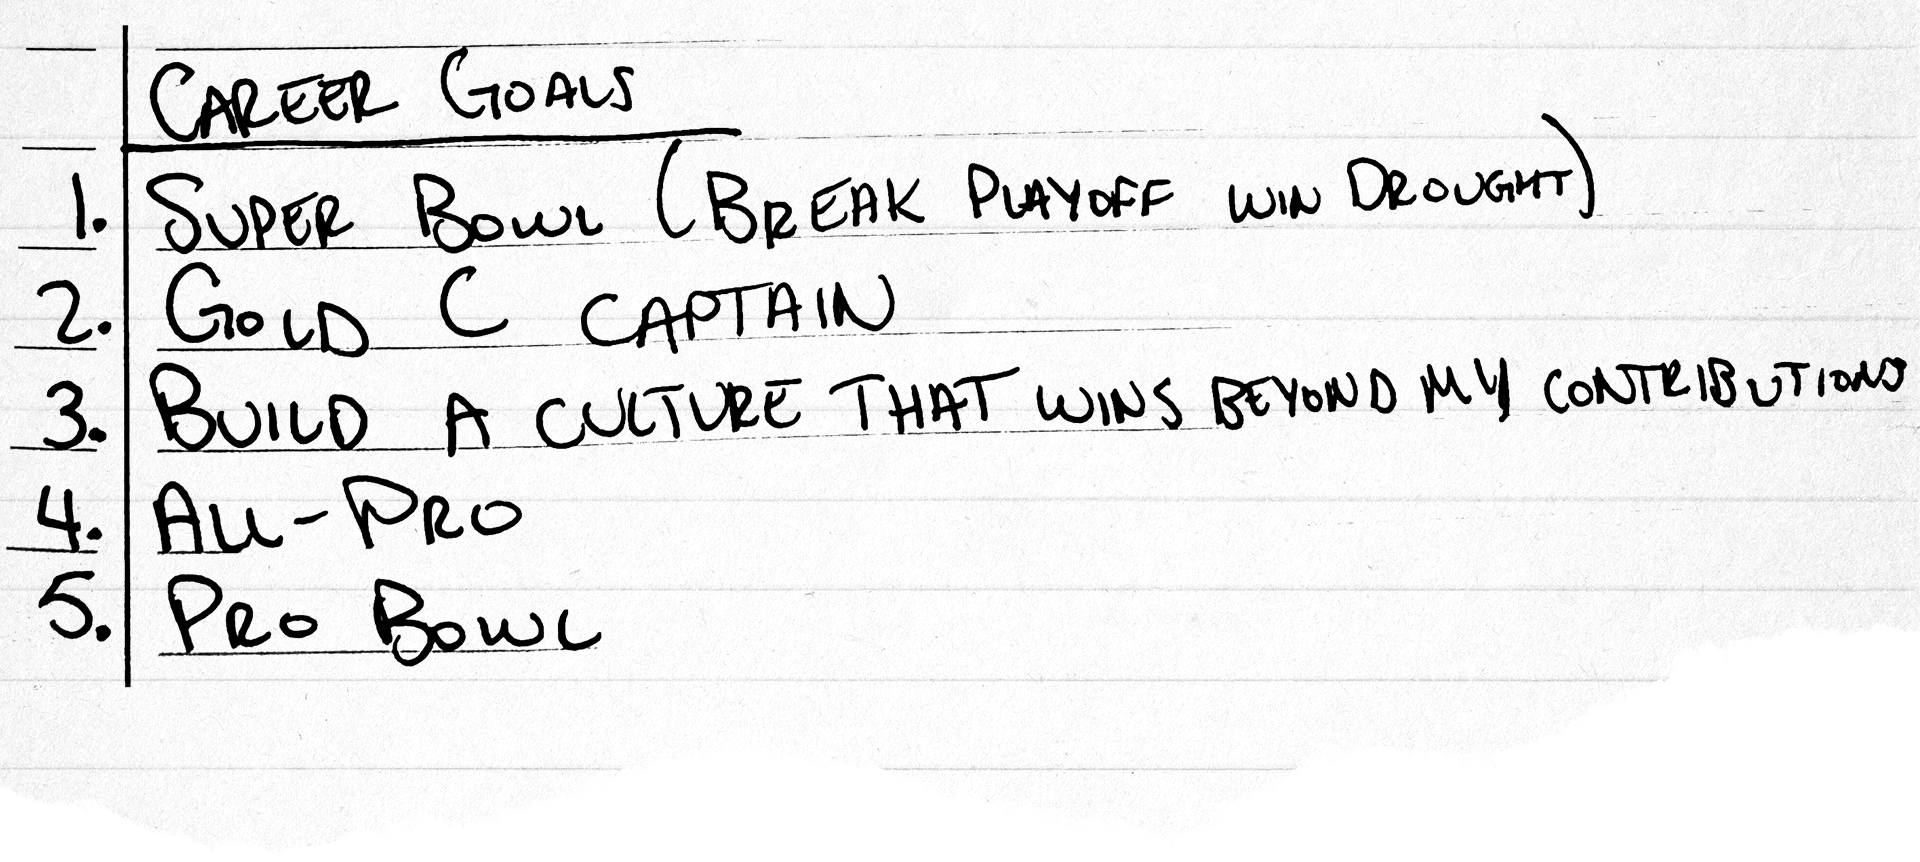 CAREER GOALS
1. SUPER BOWL (BREAK PLAYOFF WIN DROUGHT)
2. GOLD C CAPTAIN
3. BUILD A CULTURE THAT WINS BEYOND MY CONTRIBUTIONS
4. ALL-PRO
5. PRO BOWL